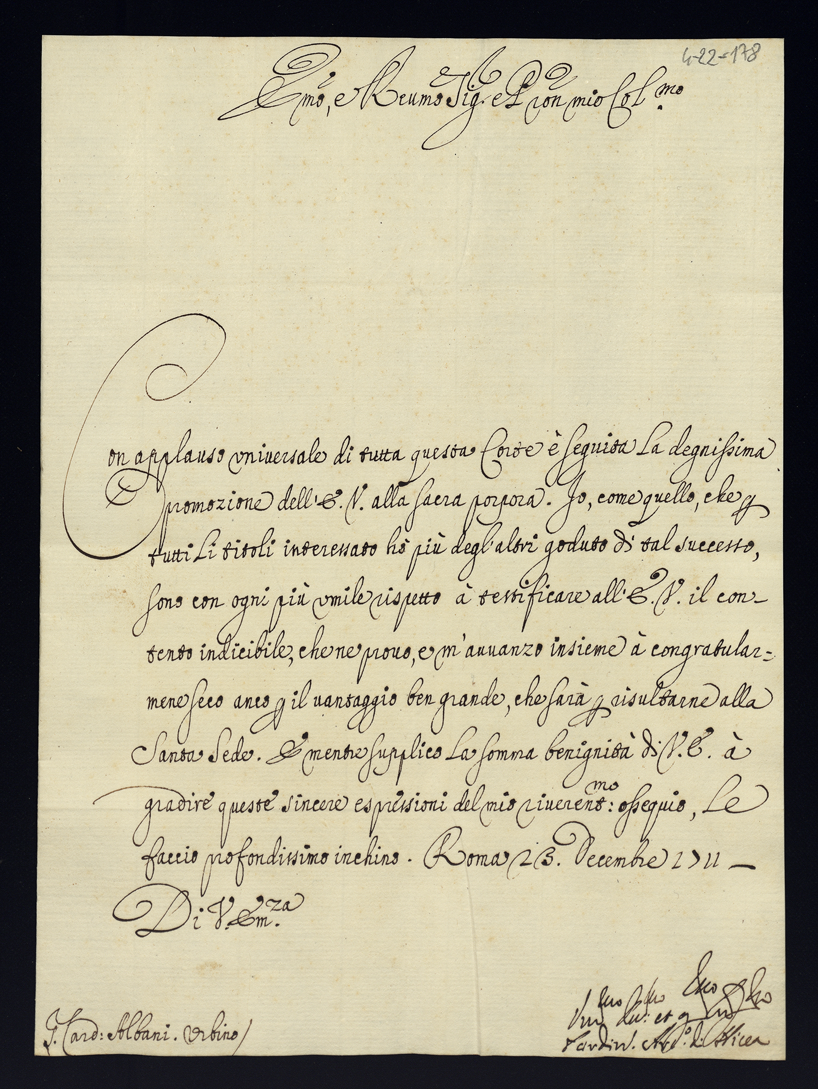 4-22-178
Emo, e Reumo Sig.r e P'ron mio Col.mo
Con applauso vniuersale di tutta questa Corte è seguita La degnissima
promozione dell'E. V. alla sacra porpora. Io, come quello, che p
tutti Li titoli interessato hò più degl'altri goduto di tal successo,
sono con ogni più vmile rispetto à testificare all'E. V. il con-
tento indicibile, che ne prouo, e m'auuanzo insieme à congratular=
mene seco anco p il vantaggio ben grande, che sarà p risultarne alla
Santa Sede. E mentre supplico La somma benignità di V. E. à
gradire queste sincere espressioni del mio riuerent:mo ossequio, Le
faccio profondissimo inchino. Roma 23. Decembre 1711 —
Di V. Em.za
S. Card: Albani. Vrbino/